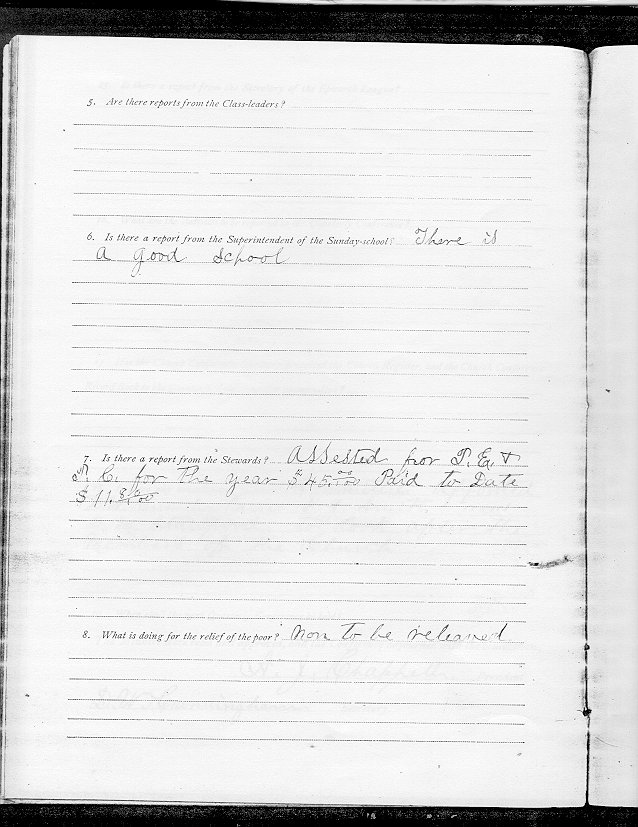 5. Are there reports from the Class-leaders?
6. Is there a report from the Superintendent of the Sunday-school? There is
a good school
7. Is there a report from the Stewards? Assested for P. E. &
P. C. for the year $45.00/100 Paid to Date
$11.80/100
8. What is doing for the relief of the poor? Non to be releaved